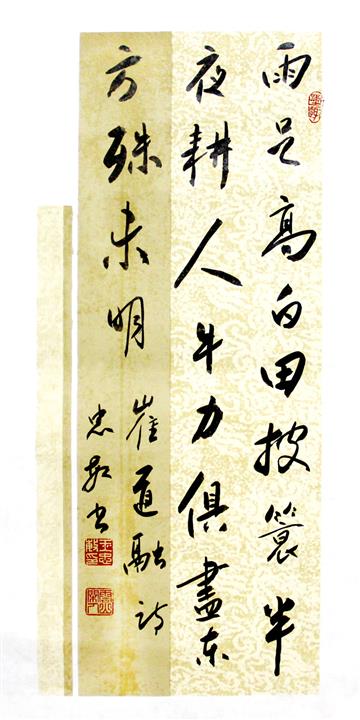 雨足高白田披蓑半
夜耕人牛力俱盡东
方殊未明
崔道融诗
忠敬书